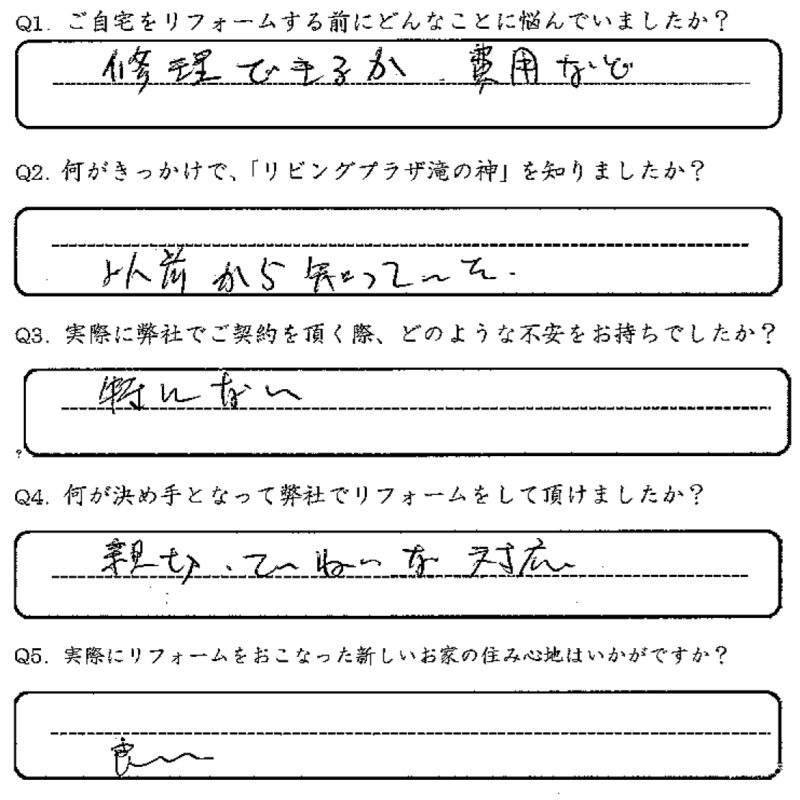 Q1. ご自宅をリフォームする前にどんなことに悩んでいましたか？
修理できるか 費用など
Q2. 何がきっかけで、「リビングプラザ滝の神」を知りましたか？
以前から知っていた.
Q3. 実際に弊社でご契約を頂く際、どのような不安をお持ちでしたか？
特にない
?
Q4. 何が決め手となって弊社でリフォームをして頂けましたか？
親切.ていねいな 対応
Q5. 実際にリフォームをおこなった新しいお家の住み心地はいかがですか？
良い